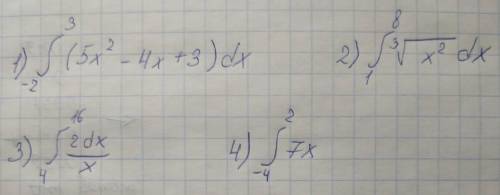 1) ∫_{-2}^{3} (5x² - 4x + 3) dx 2) ∫_{1}^{8} ∛x² dx
3) ∫_{4}^{16} 2dx/x 4) ∫_{-4}^{2} 7x